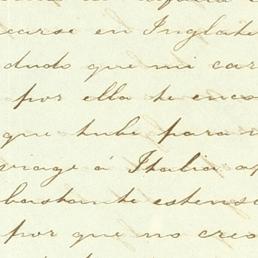 carse en Inglate
dudo que mi car
por ella te enco
que tube para
viage á Italia ap
bastante estenso
por que no creo